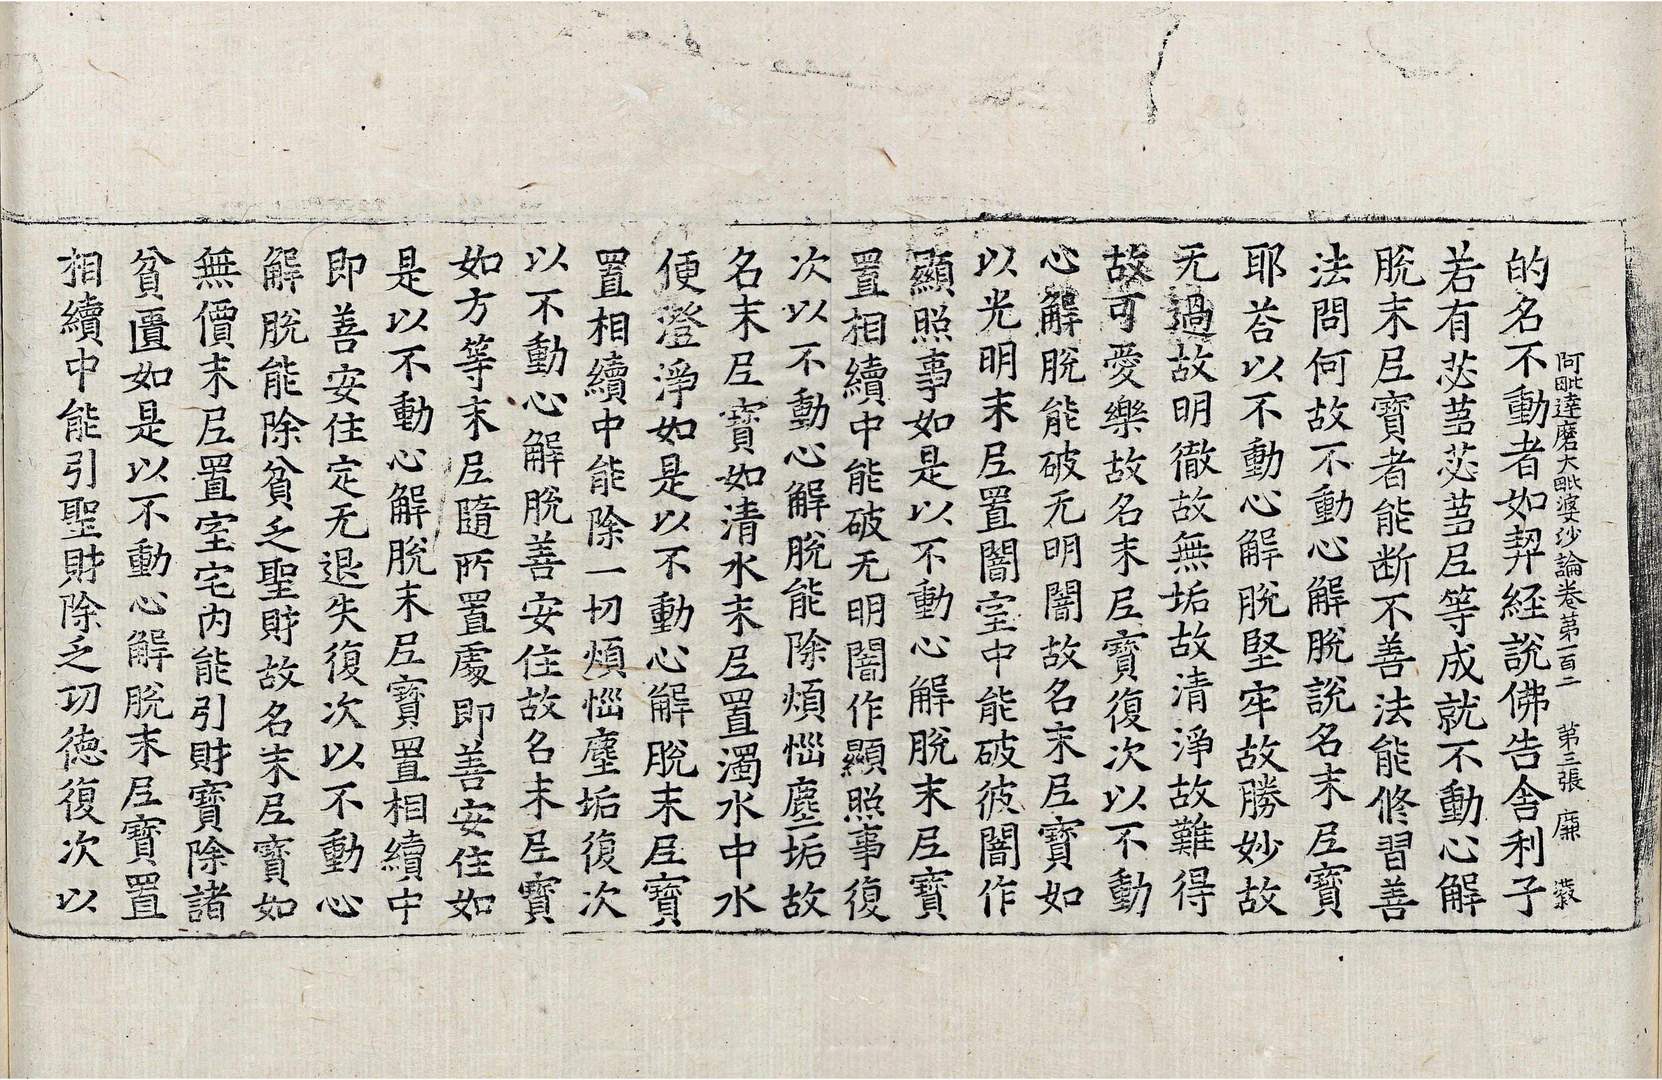 阿毗達磨大毗婆沙論卷第一百二　第三張　廉
的名不動者如契經說佛告舍利子
若有苾芻苾芻尼等成就不動心解
脫末尼寶者能断不善法能修習善
法問何故不動心解脫說名末尼寶
耶荅以不動心解脫堅牢故勝妙故
无過故明徹故無垢故清淨故難得
故可愛樂故名末尼寶復次以不動
心解脫能破无明闇故名末尼寶如
以光明末尼置闇室中能破彼闇作
顯照事如是以不動心解脫末尼寶
置相續中能破无明闇作顯照事復
次以不動心解脫能除煩惱塵垢故
名末尼寶如清水末尼置濁水中水
便澄淨如是以不動心解脫末尼寶
置相續中能除一切煩惱塵垢復次
以不動心解脫善安住故名末尼寶
如方等末尼隨所置處即善安住如
是以不動心解脫末尼寶置相續中
即善安住定无退失復次以不動心
解脫能除貧乏聖財故名末尼寶如
無價末尼置室宅內能引財寶除諸
貧匱如是以不動心解脫末尼寶置
相續中能引聖財除乏功德復次以